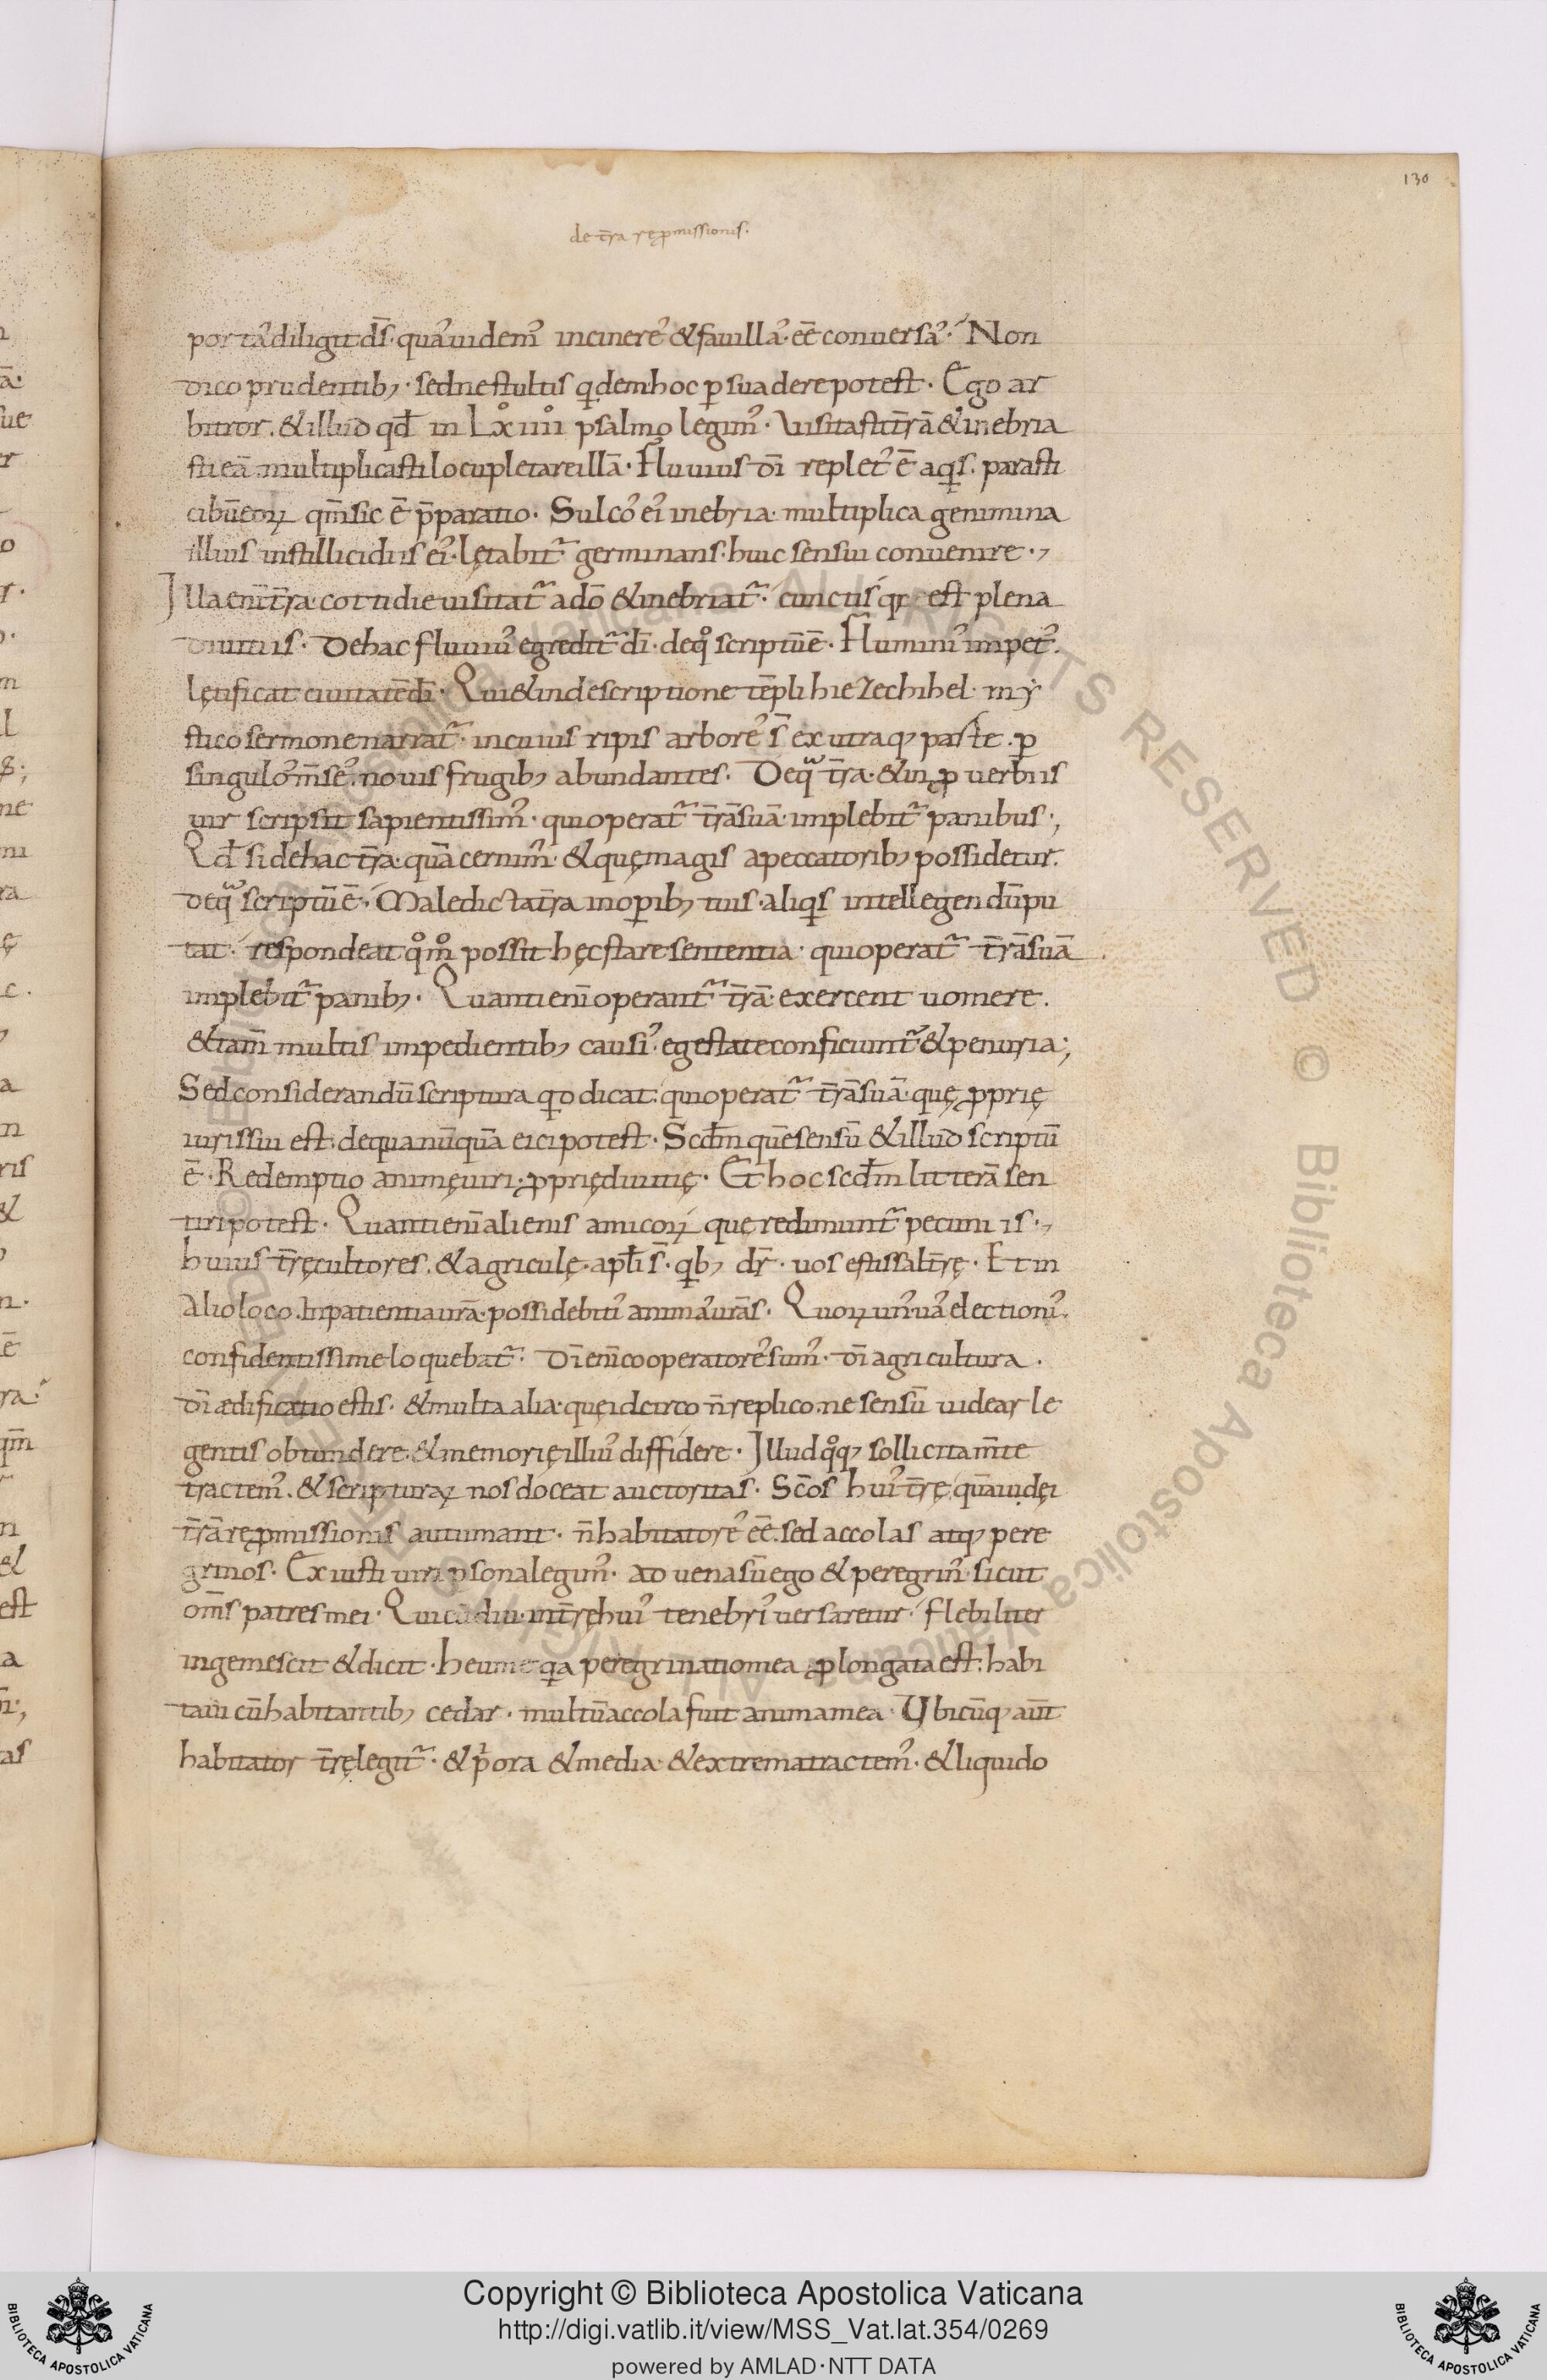 130
de t̄ra rep̱missionis.
por tā diligit d̄s. quā uidem᾽ in cinere᾽ & fauillā. ēē conuersā. Non
dico prudentib; sed ne stultis q̇dem hoc ꝑsuadere potest. Ego ar
bitror. & illud qd̄ in Lxͦiiiiͦ psalmo legim᾽. Visitasti t̄rā & inebria
sti eā multiplicasti locupletare illā. Fluuius d̄i replet᾽ ē aq̇s. parasti
cibū eoꝝ qm̄ sic ē p̄paratio. Sulco᾽ ei᾽ inebria. multiplica genimina
illius in stillicidiis ei᾽. lętabit᷑ germinans. huic sensui conuenire.,
Illa eni᾽ t̄ra cottidie uisitat᷑ a dō & inebriat᷑. cunctisq; est plena
diuitiis. De hac fluuiu᾽ egredit᷑ d̄i. de qͦ scriptū ē. Flumini᾽ impet᾽.
lętificat ciuitatē d̄i. Qui & in descriptione tēpli hiezechihel. my
stico sermone narrat᷑. in cuius ripis arbore᾽ s̄ ex utraq; parte. ꝑ
singulo᾽ m̄se᾽. nouis frugib; abundantes. De qͣ t̄ra. & in ꝓuerbiis
uir scripsit sapientissim᾽. qui operat᷑ t̄rā suā implebit᷑ panibus.,
Qd̄ si de hac t̄ra. quā cernim᾽. & quę magis a peccatorib; possidetur.
de qͣ scriptū ē. Maledicta t̄ra in oꝑib; tuis. aliq̇s intellegendū pu
tat. respondeat qͦmͦ possit hęc stare sententia. qui operat᷑ t̄rā suā
implebit᷑ panib;. Quanti eni᾽ operant᷑ t̄rā. exercent uomere.
& tam̄ multis impedientib; causi᾽. egestate conficiunt᷑ & penuria;
Sed considerandū scriptura q̇d dicat. qui operat᷑ t̄rā suā. quę ꝓprię
iuris sui est. de qua nūquā eici potest. Scd̄m quē sensū & illud scriptū
ē. Redemptio animę uiri. ꝓprię diuitię. Et hoc scd̄m litterā sen
tiri potest. Quanti eni᾽ alienis amicoꝝ que redimunt᷑ pecuniis.,
huius t̄rę cultores. & agriculę. apl̄i s̄. q̇b; dr̄. uos estis sal t̄rę. Et in
alio loco. In patientia urā. possidebiti᾽ anima᾽ urās. Quoꝝ un᾽. ua᾽ electioni᾽.
confidentissime loquebat᷑. D̄i eni᾽ cooperatore᾽ sum᾽. d̄i agricultura.
d̄i ædificatio estis. & multa alia. quę idcirco n̄ replico. ne sensū uidear le
gentis obtundere. & memorię illiu᾽ diffidere. Illud qͦq; sollicita m̄te
tractem᾽. & scripturaꝝ nos doceat auctoritas. Sc̄os hui᾽ t̄rę quā iudęi
t̄rā rep̱missionis autumant. n̄ habitatore᾽ ēē. sed accolas atq; pere
grinos. Ex iusti uiri ꝑsona legim᾽. Aduena sū ego & peregrin᾽. sicut
om̄s patres mei. Qui cū diu. in t̄rę hui᾽ tenebri᾽ uersaretur. flebiliter
ingemescit & dicit. heu me q̇a peregrinatio mea ꝓlongata est. habi
taui cū habitantib; cedar. multū accola fuit anima mea. Ubicūq; aut̄
habitator t̄rę legit᷑. & p̍ora & media & extrema tractem᾽. & liquido
Copyright © Biblioteca Apostolica Vaticana
http://digi.vatlib.it/view/MSS_Vat.lat.354/0269
powered by AMLAD·NTT DATA